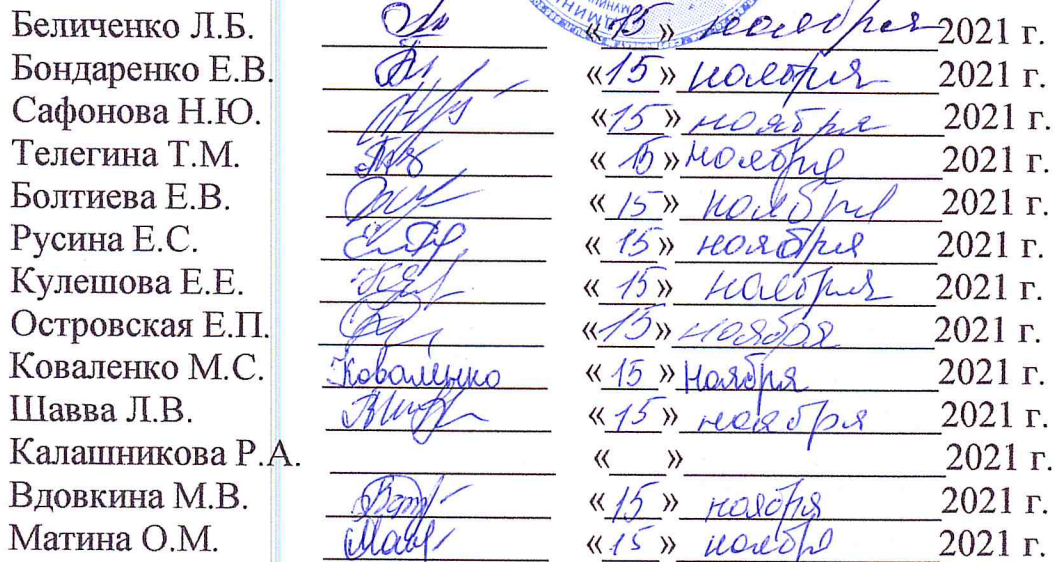 Беличенко Л.Б. «15» ноября 2021 г.
Бондаренко Е.В. «15» ноября 2021 г.
Сафонова Н.Ю. «15» ноября 2021 г.
Телегина Т.М. «15» ноября 2021 г.
Болтиева Е.В. «15» ноября 2021 г.
Русина Е.С. «15» ноября 2021 г.
Кулешова Е.Е. «15» ноября 2021 г.
Островская Е.П. «15» ноября 2021 г.
Коваленко М.С. Коваленко «15» ноября 2021 г.
Шавва Л.В. «15» ноября 2021 г.
Калашникова Р.А. «___» 2021 г.
Вдовкина М.В. «15» ноября 2021 г.
Матина О.М. «15» ноября 2021 г.